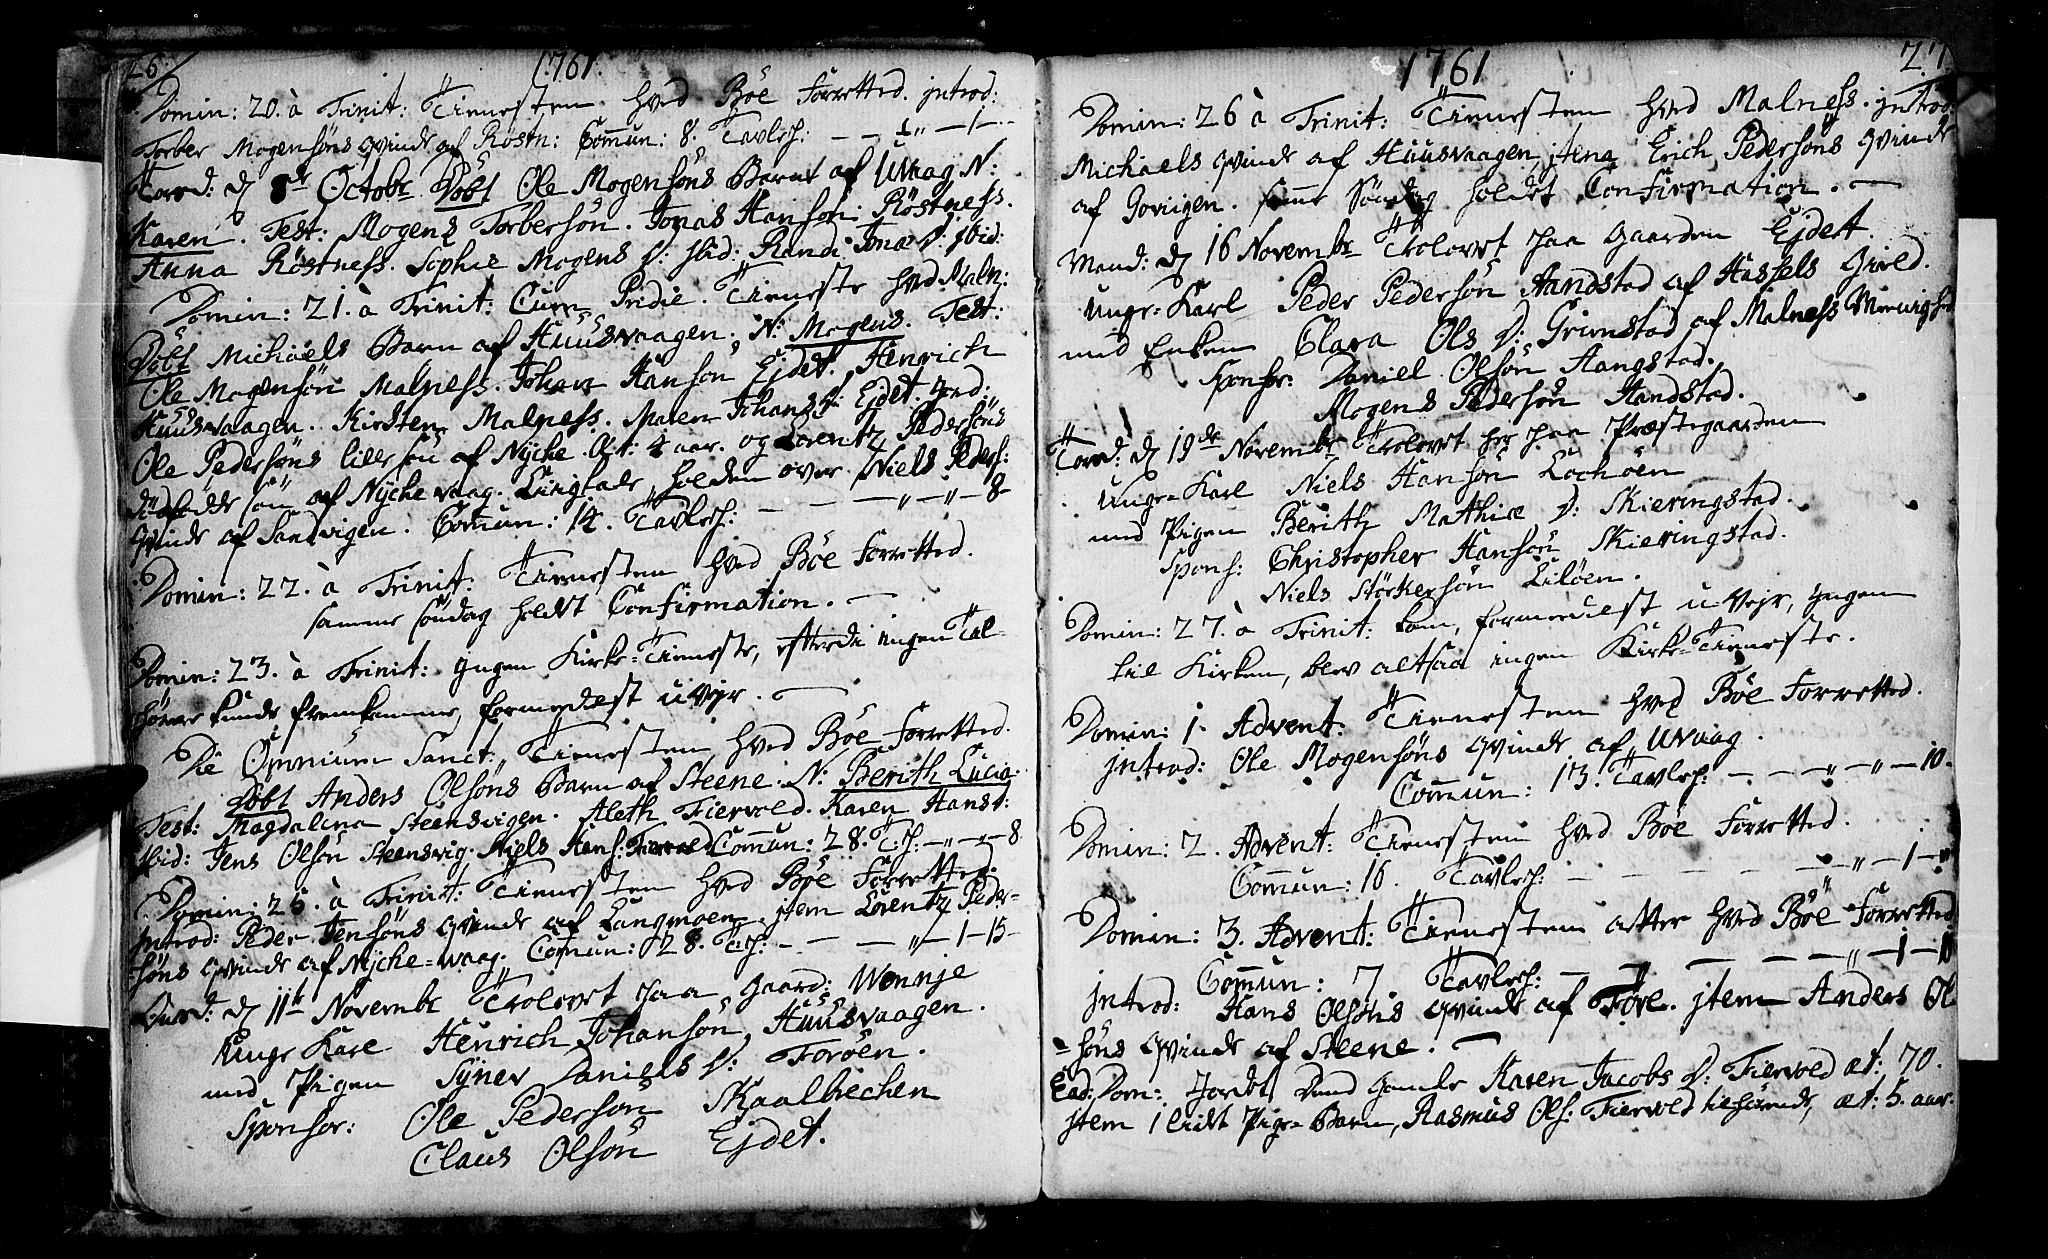 26.
1761.
Domin: 20. à Trinit: Tienesten hved Böe Forretted. jntrod:
Torber Mogensöns qvinde af Röstn: Com̄un: 8. Tavlep:
Torsd: d 8de Octobr Döbt Ole Mogensöns Barn af Uvaag N:
Karen. Test: Mogens Torbersön. Jonas Hansön Röstness.
Anna Röstness. Sophie Mogens D: jbid: Randi Jonæ D: jbid:
Domin: 21. à Trinit: Cum Pridie. Tieneste hved Maln:
Döbt Michaels Barn af Huusvaagen, N: Mogens. Test:
Ole Mogensön Malness. Johan Hansön Ejdet. Henrich
Huusvaagen. Kirsten Malness. Maren Johans D: Ejdet.
Ole Pedersöns lille sön af Nyche. Æt: 4 aar. og Lorentz Pedersöns
dödfödde sön af Nyche vaag. Liigtale holden over Niels Peders:
qvinde af Sandvigen. Com̄un: 14. Tavlep: — — — „ — „ — 8 –
Domin: 22. à Trinit: Tienesten hved Böe Forretted.
samme söndag holdt Confirmation. —
Domin: 23. à Trinit: jngen Kirke-Tieneste, efterdi ingen Til-
hörere kunde fremkomme, formedelst uvejr. —
Die Omnium Sanct: Tienesten hved Böe Forretted.
Döbt Anders Olsöns Barn af Steene. N: Berith Lucia.
Test: Magdalena Steensvigen. Aleth Fiervold. Karen Hans D:
jbid: Jens Olsön Steensvig. Niels Hans: Fiervold Com̄un: 28. T.p: — „ — „ — 8
Domin: 25. à Trinit: Tienesten hved Böe Forretted.
jntrod: Peder Jensöns qvinde af Langmoen. jtem Lorentz Peder-
söns qvinde af Nyche-vaag. Com̄un: 28. T.p: — — — „ — 1 – 15 –
Onsd: d 11te Novembr Trolovet paa Gaard: Wennje
Unge Karl Henrich Johansön, Huusvaagen.
med Pigen Synev Daniels D: Foröen.
Sponsor: Ole Pedersön Skaalbrechen
Claus Olsön Ejdet.
1761
27
Domin: 26 à Trinit: Tienesten hved Malness. jntrod:
Michaels qvinde af Huusvaagen, jtem Erich Pedersöns qvinde
af Goviigen. samme Söndag holdt Confirmation. —
Mand: d 16 Novembr Trolovet paa Gaarden Ejdet.
Unge-Karl Peder Pedersön Aandstad af Hassels Gield.
med Enken Clara Ols D: Grimstad af Malness Menighed
Sponsor: Daniel Olsön Aangstad.
Mogens Pedersön Aandstad.
Torsd: d 19de Novembr Trolovet her paa Præstegaarden
Unge-Karl Niels Hansön Lochöen
med Pigen Berith Mathiæ D: Skieringstad.
Spons: Christopher Hansön Skieringstad.
Niels Störkersön Liløen.
Domin: 27. à Trinit: kom, formedelst u-vejr, jngen
til Kirken, blev altsaa ingen Kirke-Tieneste.
Domin: 1. Advent: Tienesten hved Böe Forretted.
jntrod: Ole Mogensöns qvinde af Uvaag.
Com̄un: 13. Tavlep: — — — „ — „ — 10 –
Domin: 2. Advent: Tienesten hved Böe Forretted.
Com̄un: 16. Tavlep: — — — — — „ — 1 – „
Domin: 3. Advent: Tienesten atter hved Böe Forretted
Com̄un: 7. Tavlep: — — — — „ — 1 –
jntrod: Hans Olsöns qvinde af Före. jtem Anders Ol
-söns qvinde af Steene. —
Ead: Dom: Jordet Dend gamle Karen Jacobs D: Fiervold æt: 70.
jtem 1 lidet Pige-Barn, Rasmus Ols: Fiervold tilhörende, æt: 5. aar.